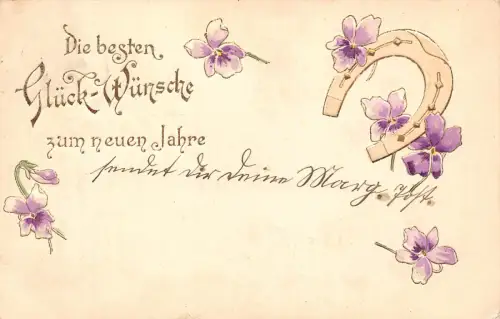 Die besten
Glück-Wünsche
zum neuen Jahre
sendet Dir Deine Marg. Post.